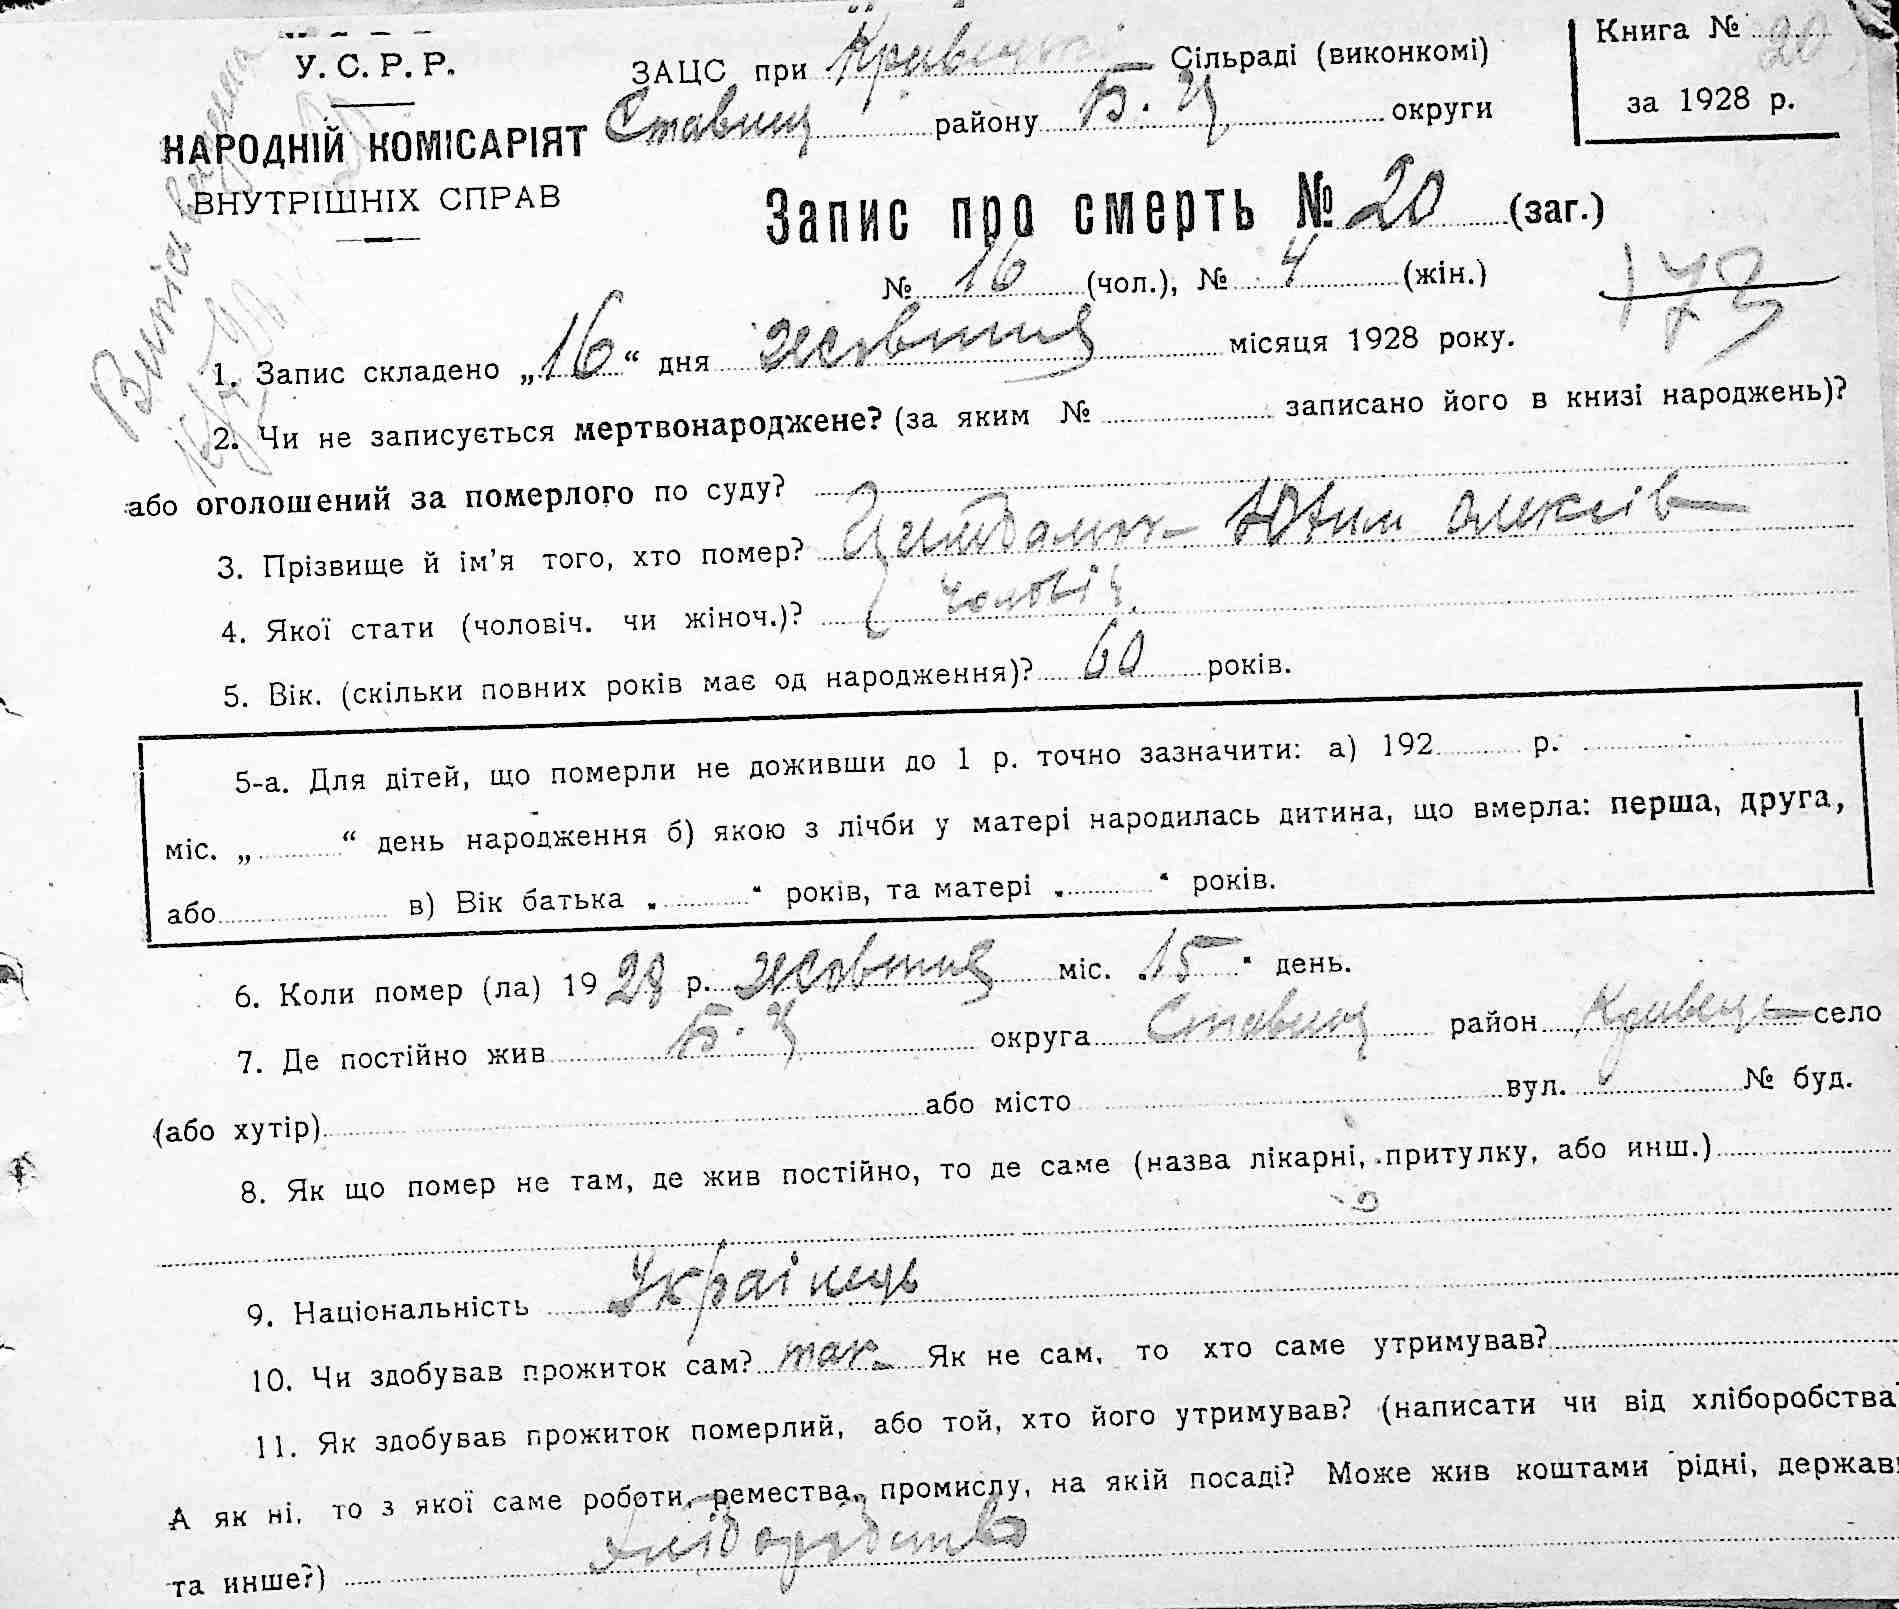 У. С. Р. Р.
НАРОДНІЙ КОМІСАРІЯТ
ВНУТРІШНІХ СПРАВ
ЗАЦС при Кривецькі Сільраді (виконкомі)
Ставищ району Б. Ц округи
Книга № 20
за 1928 р.
Запис про смерть № 20 (заг.)
№ 16 (чол.), № 4 (жін.)
173
1. Запис складено „16“ дня жовтня місяця 1928 року.
2. Чи не записується мертвонароджене? (за яким № записано його в книзі народжень)?
або оголошений за померлого по суду?
3. Прізвище й ім’я того, хто помер? Юхим Олексів
4. Якої стати (чоловіч. чи жіноч.)? чоловіч.
5. Вік. (скільки повних років має од народження)? 60 років.
5-а. Для дітей, що померли не доживши до 1 р. точно зазначити: а) 192 р.
міс. „ “ день народження б) якою з лічби у матері народилась дитина, що вмерла: перша, друга,
або в) Вік батька „ “ років, та матері „ “ років.
6. Коли помер (ла) 1928 р. жовтня міс. „15“ день.
7. Де постійно жив Б. Ц округа Ставищ район Кривець село
(або хутір) або місто вул. № буд.
8. Як що помер не там, де жив постійно, то де саме (назва лікарні, притулку, або инш.)
9. Національність Українець
10. Чи здобував прожиток сам? так Як не сам, то хто саме утримував?
11. Як здобував прожиток померлий, або той, хто його утримував? (написати чи від хліборобства
А як ні, то з якої саме роботи, ремества, промислу, на якій посаді? Може жив коштами рідні, держав
та инше?) хліборобство